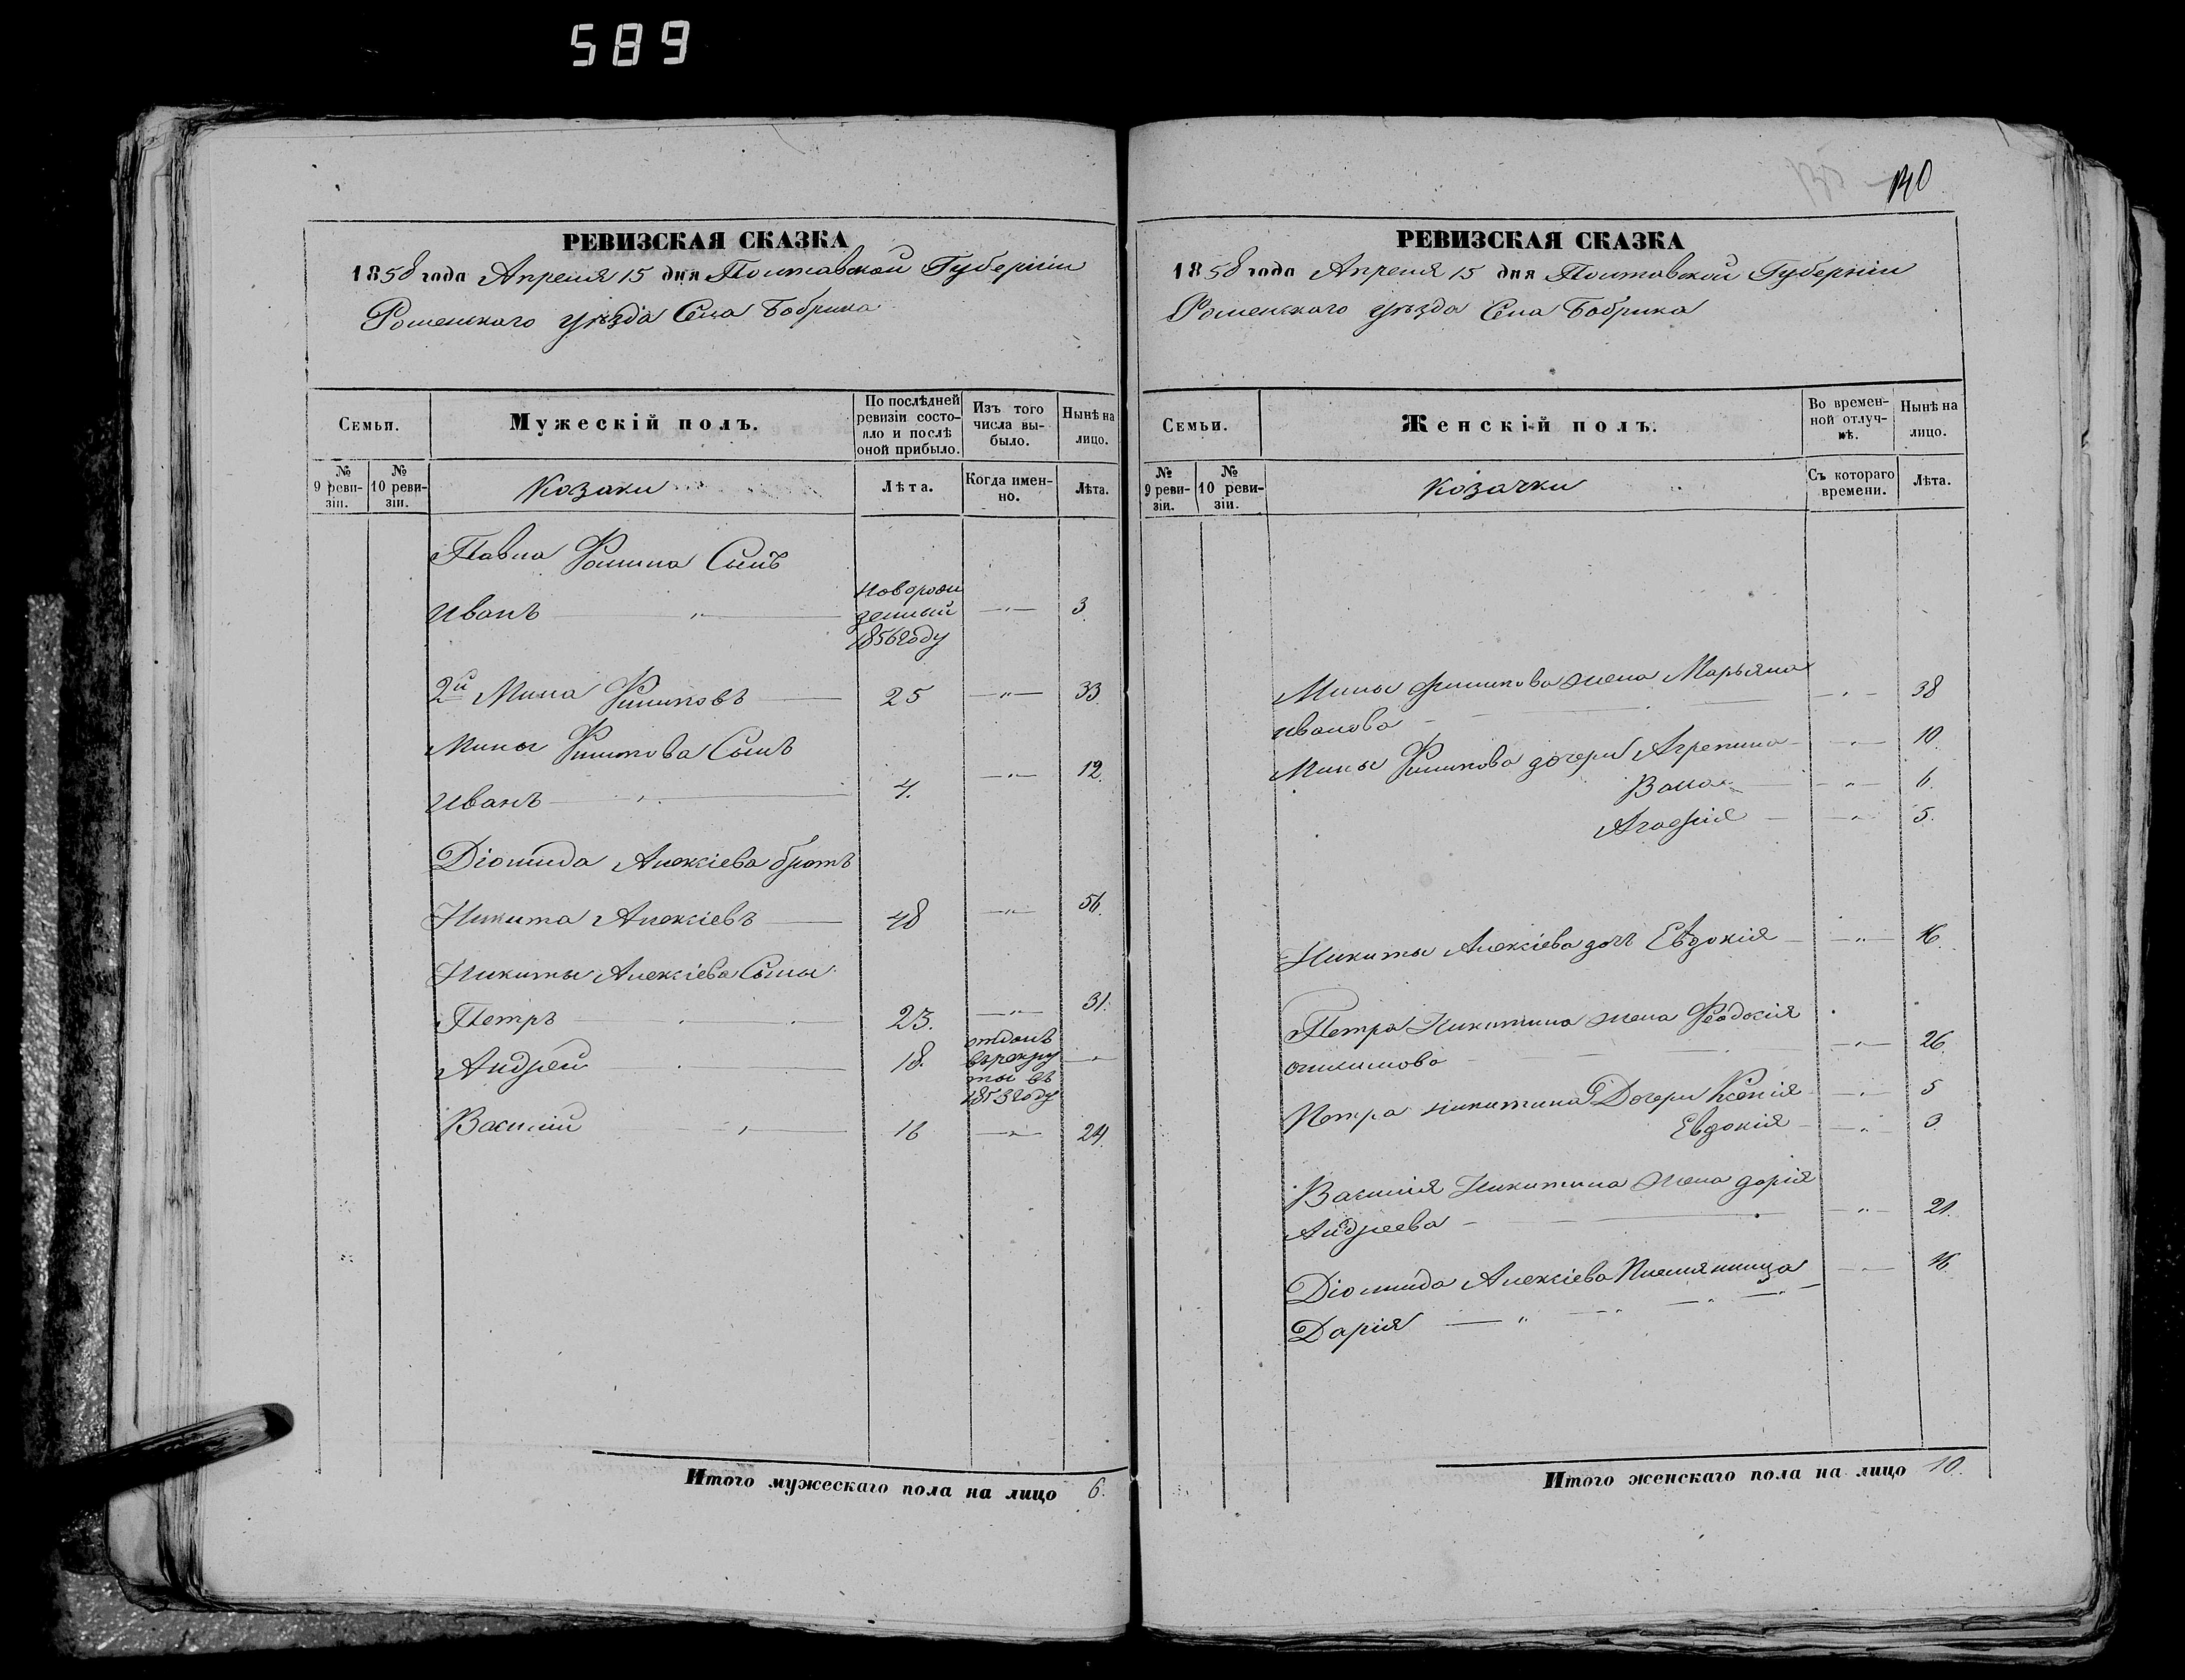 589
140
РЕВИЗСКАЯ СКАЗКА
1858 года Апреля 15 дня Полтавской Губерніи
Роменского уѣзда Села Бобрика
Семьи.
Мужескій полъ.
По послѣдней ревизіи состояло и послѣ оной прибыло.
Изъ того числа выбыло.
Нынѣ на лицо.
№ 9 ревизіи.
№ 10 ревизіи.
Козаки
Лѣта.
Когда именно.
Лѣта.
Павла Фомина Сынъ
Иванъ — новорожденный 1856 году — 3
2й Мина Филиповъ — 25 — 33
Мины Филипова Сынъ
Иванъ — 4. — 12.
Діомида Алексіева братъ
Никита Алексіевъ — 48 — 56.
Никиты Алексіева Сыны
Петръ — 23. — 31.
Андрей — 18. отданъ въ рекруты въ 1853 году —
Василій — 16 — 24.
Итого мужескаго пола на лицо 6.
РЕВИЗСКАЯ СКАЗКА
1858 года Апреля 15 дня Полтавской Губерніи
Роменского уѣзда Села Бобрика
Семьи.
Женскій полъ.
Во временной отлучкѣ.
Нынѣ на лицо.
№ 9 ревизіи.
№ 10 ревизіи.
Козачки
Съ котораго времени.
Лѣта.
Мины Филипова жена Марьяна
Иванова — 38
Мины Филипова дочери Агрепина — 10.
— 6.
Агафія — 5.
Никиты Алексіева дочь Евдокія — 16.
Петра Никитина жена Феодосія
— 26.
Петра Никитина Дочери Ксенія — 5
Евдокія — 3
Василія Никитина жена дарія
Андреева — 21.
Діомида Алексіева Племянница — 16
Дарія
Итого женскаго пола на лицо 10.